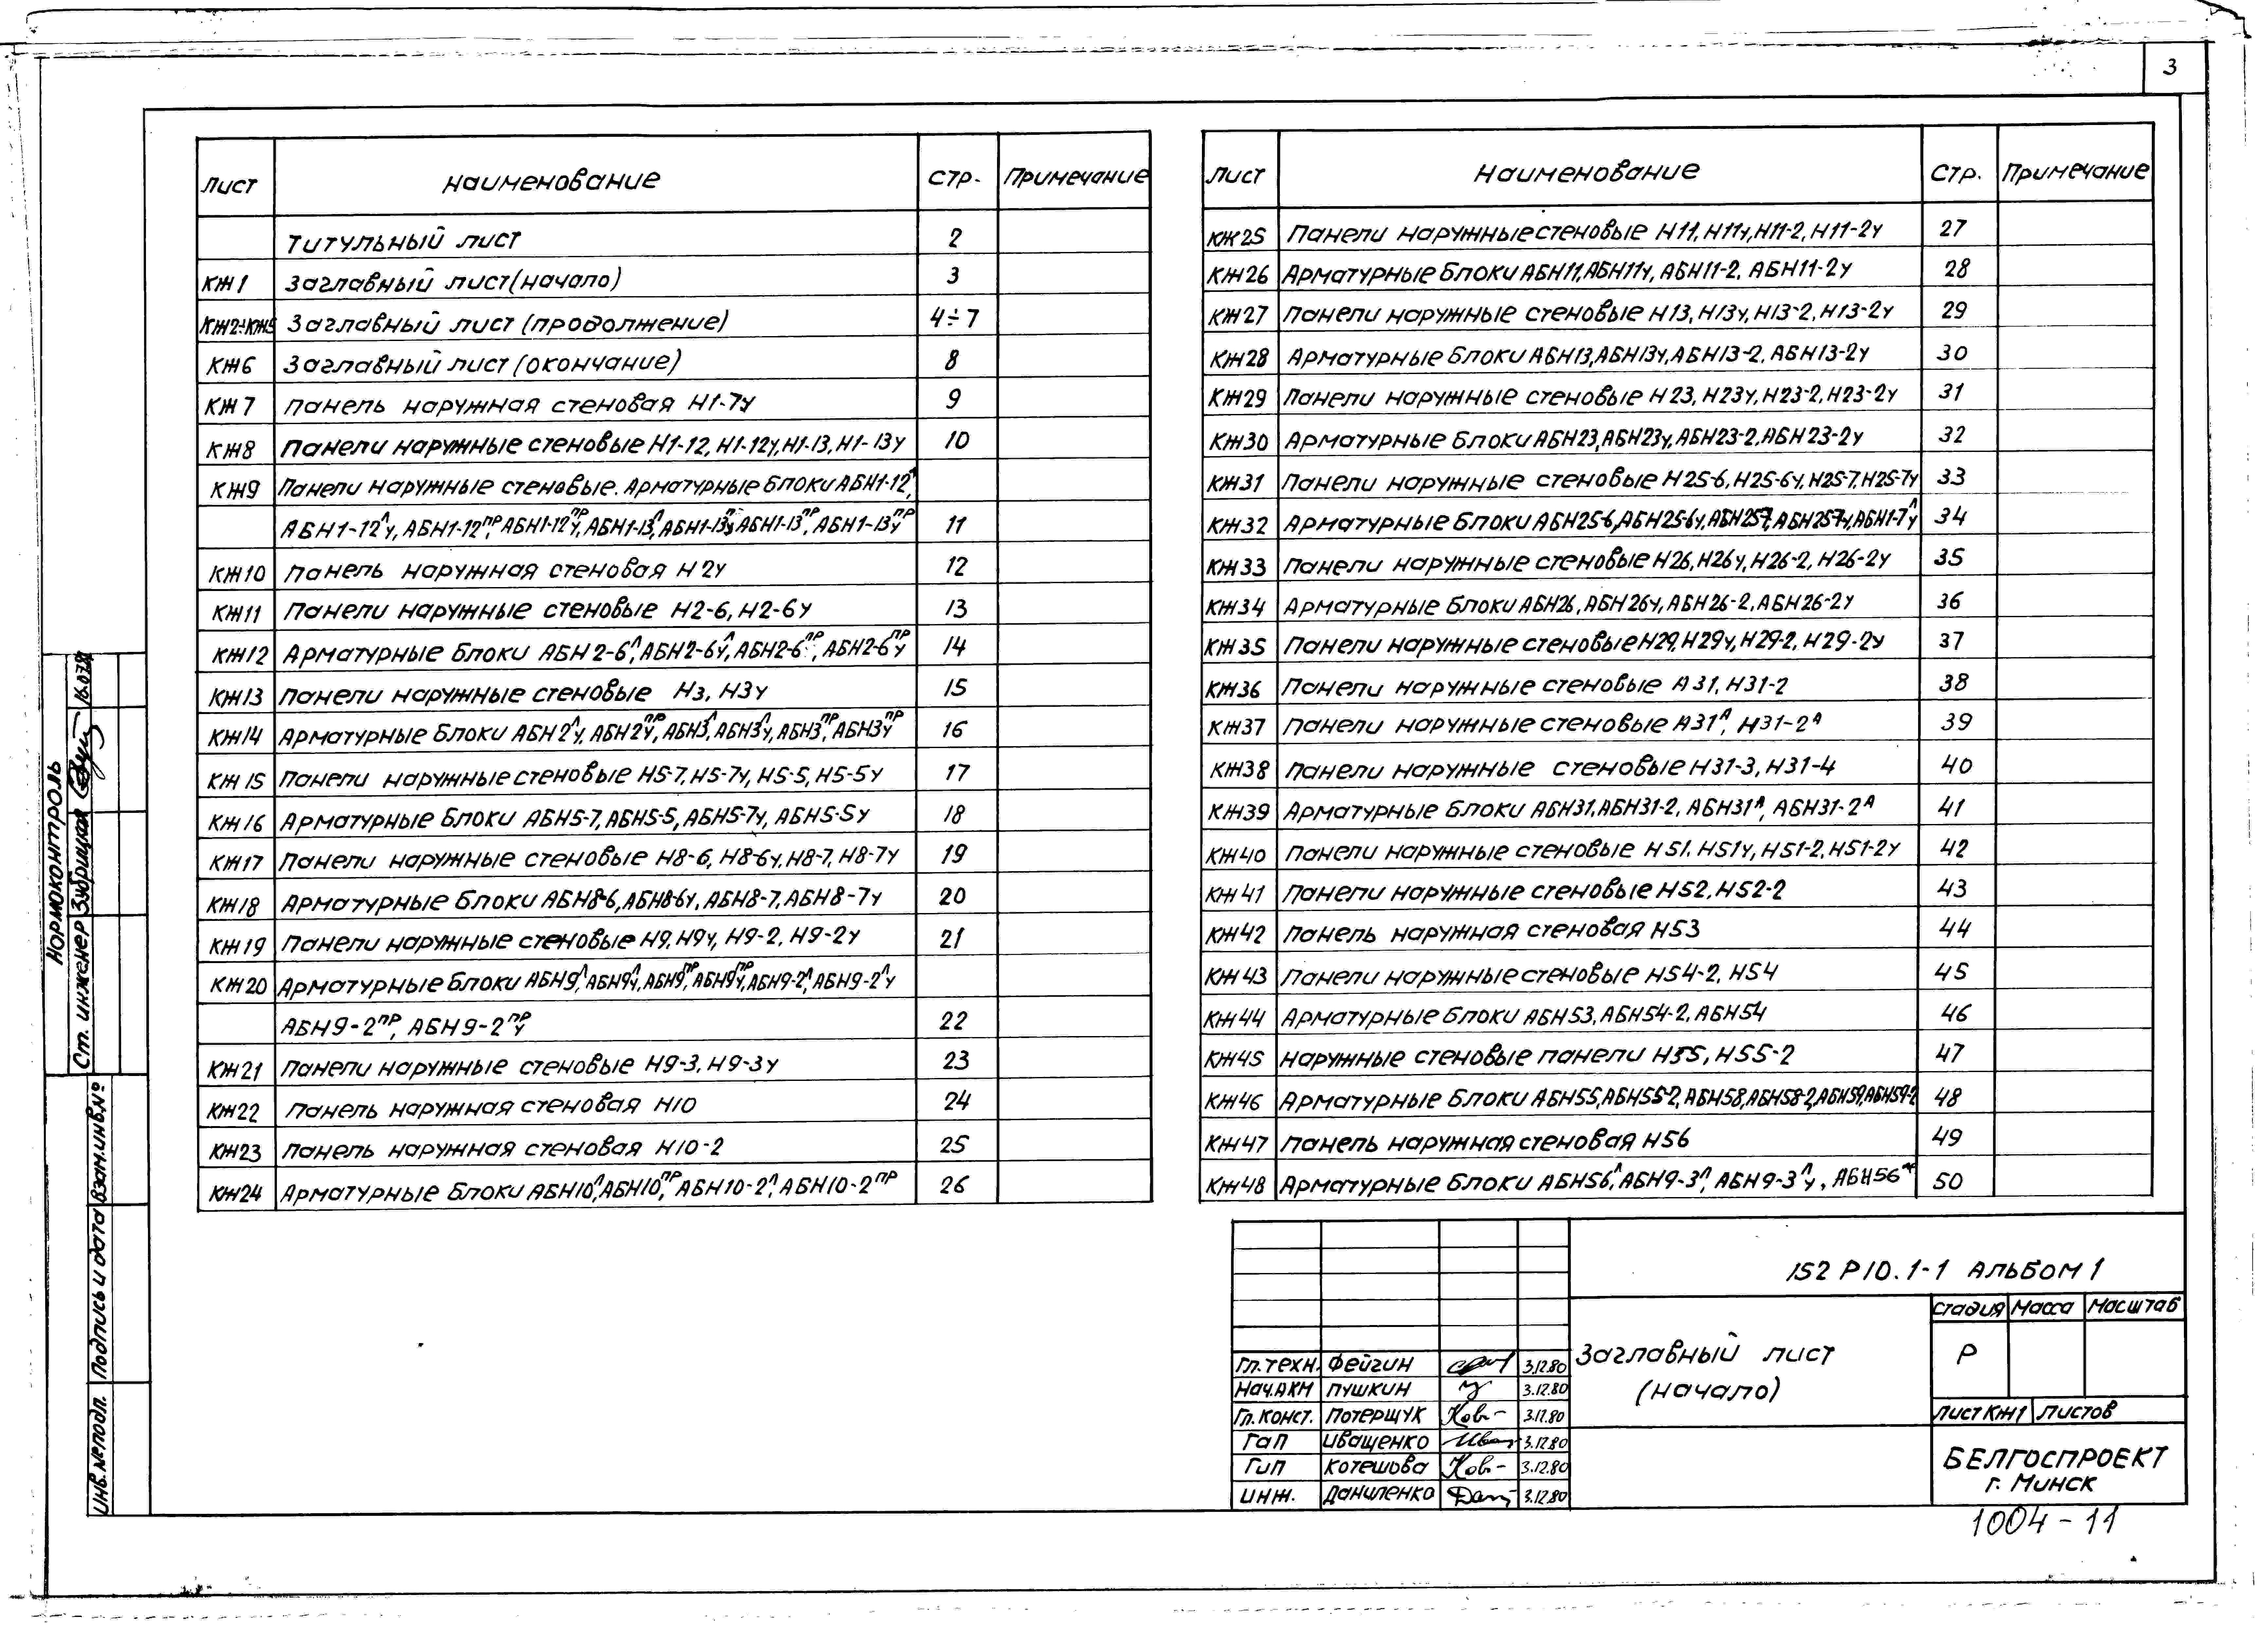 3
Лист Наименование Стр. Примечание
Титульный лист 2
КЖ1 Заглавный лист (начало) 3
КЖ2÷КЖ5 Заглавный лист (продолжение) 4÷7
КЖ6 Заглавный лист (окончание) 8
КЖ7 Панель наружная стеновая Н1-7у 9
КЖ8 Панели наружные стеновые Н1-12, Н1-12у, Н1-13, Н1-13у 10
КЖ9 Панели наружные стеновые. Арматурные блоки АБН1-12ᴸ,
АБН1-12ᴸу, АБН1-12ᴨᴾ, АБН1-12ᴨᴾу, АБН1-13ᴸ, АБН1-13ᴸу, АБН1-13ᴨᴾ, АБН1-13ᴨᴾу 11
КЖ10 Панель наружная стеновая Н2у 12
КЖ11 Панели наружные стеновые Н2-6, Н2-6у 13
КЖ12 Арматурные блоки АБН2-6ᴸ, АБН2-6ᴸу, АБН2-6ᴨᴾ, АБН2-6ᴨᴾу 14
КЖ13 Панели наружные стеновые Н3, Н3у 15
КЖ14 Арматурные блоки АБН2ᴸу, АБН2ᴨᴾу, АБН3ᴸ, АБН3ᴸу, АБН3ᴨᴾ, АБН3ᴨᴾу 16
КЖ15 Панели наружные стеновые Н5-7, Н5-7у, Н5-5, Н5-5у 17
КЖ16 Арматурные блоки АБН5-7, АБН5-5, АБН5-7у, АБН5-5у 18
КЖ17 Панели наружные стеновые Н8-6, Н8-6у, Н8-7, Н8-7у 19
КЖ18 Арматурные блоки АБН8-6, АБН8-6у, АБН8-7, АБН8-7у 20
КЖ19 Панели наружные стеновые Н9, Н9у, Н9-2, Н9-2у 21
КЖ20 Арматурные блоки АБН9ᴸ, АБН9ᴸу, АБН9ᴨᴾ, АБН9ᴨᴾу, АБН9-2ᴸ, АБН9-2ᴸу
АБН9-2ᴨᴾ, АБН9-2ᴨᴾу 22
КЖ21 Панели наружные стеновые Н9-3, Н9-3у 23
КЖ22 Панель наружная стеновая Н10 24
КЖ23 Панель наружная стеновая Н10-2 25
КЖ24 Арматурные блоки АБН10ᴸ, АБН10ᴨᴾ, АБН10-2ᴸ, АБН10-2ᴨᴾ 26
Лист Наименование Стр. Примечание
КЖ25 Панели наружные стеновые Н11, Н11у, Н11-2, Н11-2у 27
КЖ26 Арматурные блоки АБН11, АБН11у, АБН11-2, АБН11-2у 28
КЖ27 Панели наружные стеновые Н13, Н13у, Н13-2, Н13-2у 29
КЖ28 Арматурные блоки АБН13, АБН13у, АБН13-2, АБН13-2у 30
КЖ29 Панели наружные стеновые Н23, Н23у, Н23-2, Н23-2у 31
КЖ30 Арматурные блоки АБН23, АБН23у, АБН23-2, АБН23-2у 32
КЖ31 Панели наружные стеновые Н25-6, Н25-6у, Н25-7, Н25-7у 33
КЖ32 Арматурные блоки АБН25-6, АБН25-6у, АБН25-7, АБН25-7у, АБН1-7ᴸу 34
КЖ33 Панели наружные стеновые Н26, Н26у, Н26-2, Н26-2у 35
КЖ34 Арматурные блоки АБН26, АБН26у, АБН26-2, АБН26-2у 36
КЖ35 Панели наружные стеновые Н29, Н29у, Н29-2, Н29-2у 37
КЖ36 Панели наружные стеновые Н31, Н31-2 38
КЖ37 Панели наружные стеновые Н31ᴬ, Н31-2ᴬ 39
КЖ38 Панели наружные стеновые Н31-3, Н31-4 40
КЖ39 Арматурные блоки АБН31, АБН31-2, АБН31ᴬ, АБН31-2ᴬ 41
КЖ40 Панели наружные стеновые Н51, Н51у, Н51-2, Н51-2у 42
КЖ41 Панели наружные стеновые Н52, Н52-2 43
КЖ42 Панель наружная стеновая Н53 44
КЖ43 Панели наружные стеновые Н54-2, Н54 45
КЖ44 Арматурные блоки АБН53, АБН54-2, АБН54 46
КЖ45 Наружные стеновые панели Н55, Н55-2 47
КЖ46 Арматурные блоки АБН55, АБН55-2, АБН58, АБН58-2, АБН59, АБН59-2 48
КЖ47 Панель наружная стеновая Н56 49
КЖ48 Арматурные блоки АБН56ᴸ, АБН9-3ᴸ, АБН9-3ᴸу, АБН56ᴨᴾ 50
Нормоконтроль
Ст. инженер Зубрицкая 16.07.81
Взам.инв.№
Подпись и дата
Инв.№подл.
152 Р10.1-1 Альбом 1
Заглавный лист
(начало)
Стадия Масса Масштаб
Р
Лист КЖ1 Листов
БЕЛГОСПРОЕКТ
г. Минск
Гл.техн. Фейгин 3.12.80
Нач.АКМ Пушкин 3.12.80
Гл.конст. Потерщук 3.12.80
ГАП Иващенко 3.12.80
ГИП Котешова 3.12.80
Инж. Даниленко 3.12.80
1004-11